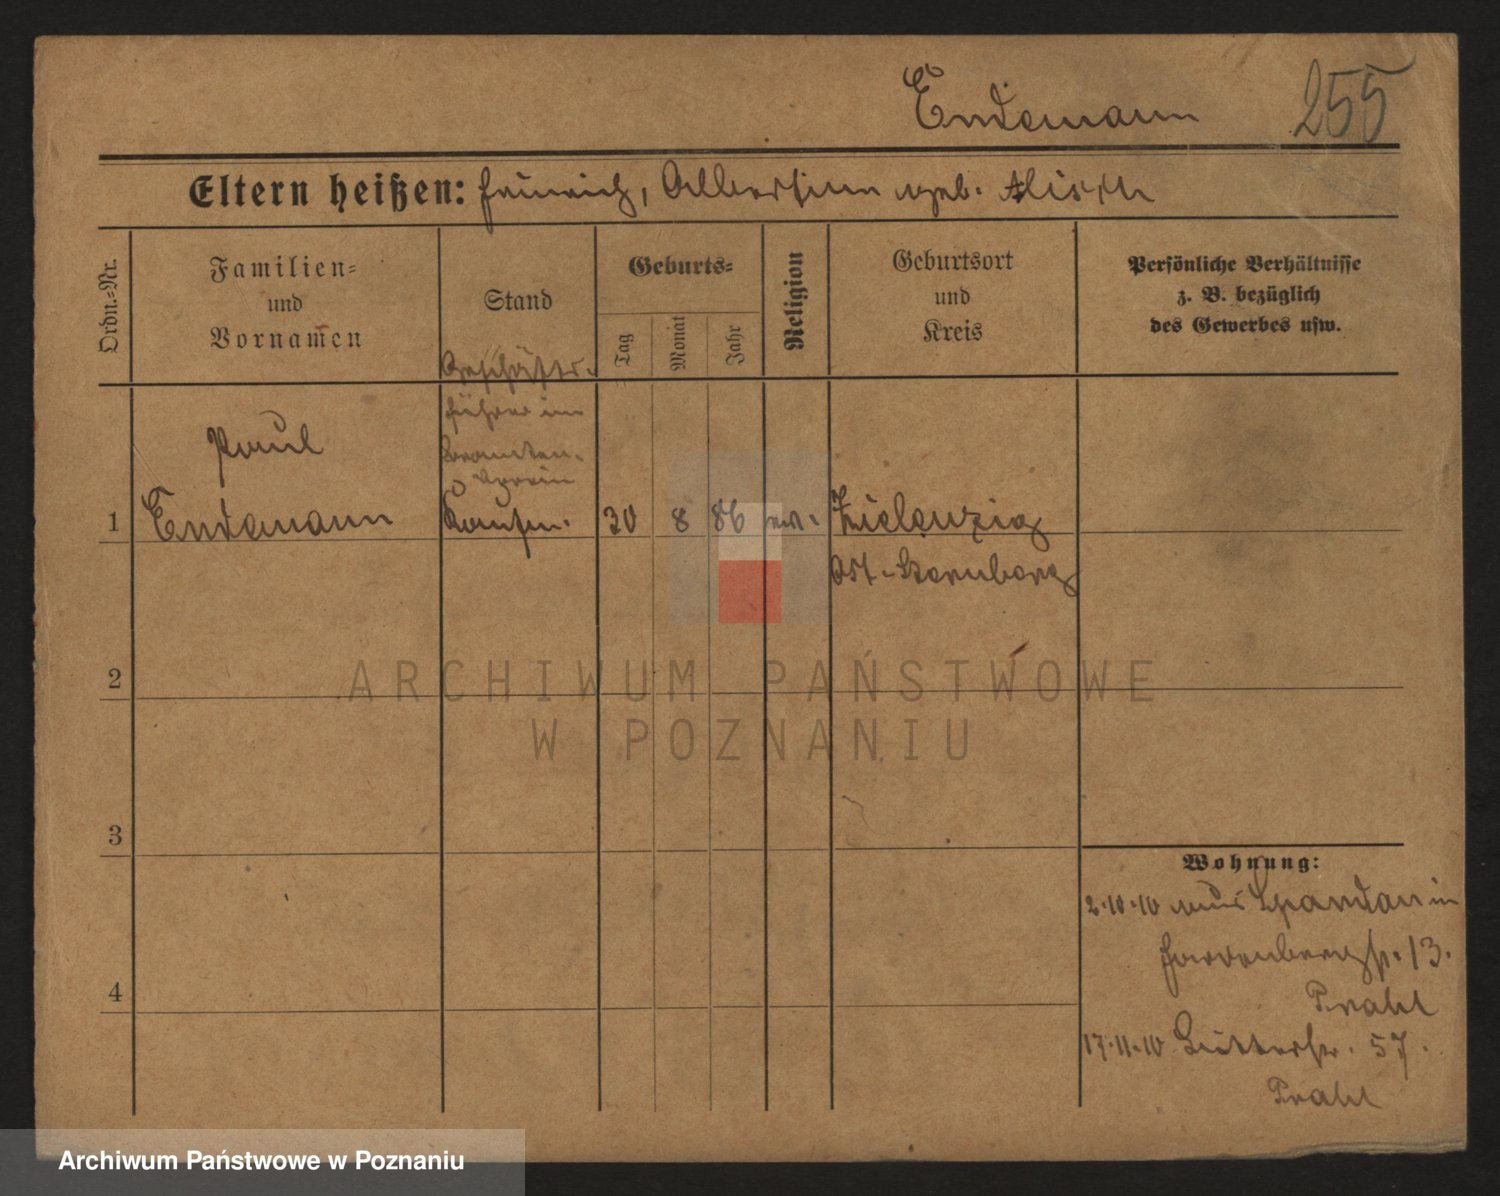 Endemann 255
Eltern heißen: Heinrich, Albertine geb.
Ordn.-Nr.
Familien-
und
Vornamen
Stand
Geburts-
Tag
Monat
Jahr
Religion
Geburtsort
und
Kreis
Persönliche Verhältnisse
z. B. bezüglich
des Gewerbes usw.
Geschäfts-
führer im
Beamten-
Verein
Paul
1 Endemann Kaufm. 30 8 86 ev. Zielenzig
Ost-Sternberg
2
3
4
Wohnung:
2.10.10 aus Spandau in
Hardenbergstr. 13.
17.11.10 57.
ARCHIWUM PAŃSTWOWE
W POZNANIU
Archiwum Państwowe w Poznaniu